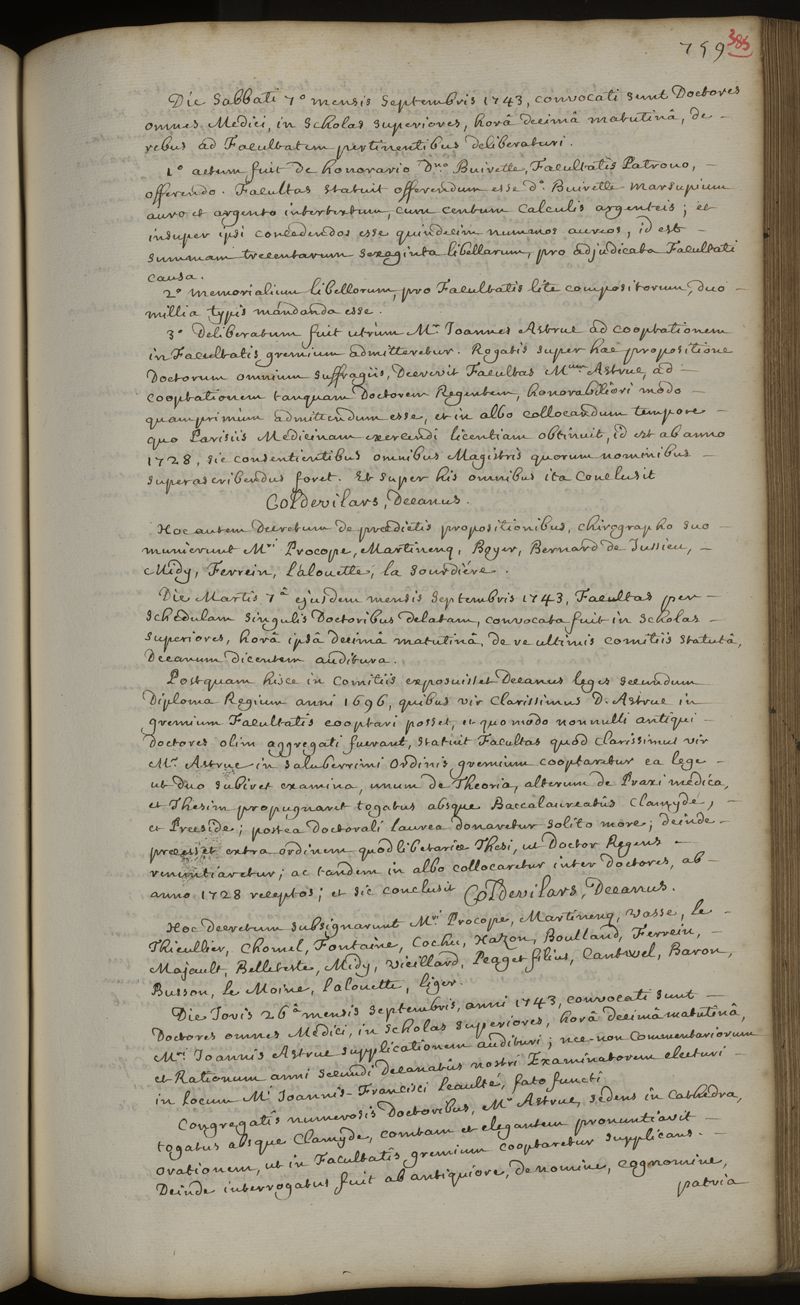 759 385
Die Sabbati 7º mensis Septembris 1743, convocati sunt Doctores
omnes Medici, in Scholas superiores, horâ decimâ matutinâ, de -
rebus ad Facultatem pertinentibus deliberaturi.
1º actum fuit de honorario Dno Buirette, Facultatis Patrono, -
offerendo. Facultas statuit offerendum esse dº. Buirette marsupium
auro et argento intertextum, cum centum calculis argenteis; et
insuper ipsi concedendos esse quindecim nummos aureos, id est -
summam trecentarum sexaginta libellarum, pro adjudicata Facultati
causa.
2º memorialium libellorum, pro Facultatis lite compositorum, duo -
millia typis mandanda esse.
3º Deliberatum fuit utrùm Mr. Joannes Astruc ad cooptationem
in Facultatis gremium admitteretur. Rogatis super hac propositione
Doctorum omnium suffragiis, Decrevit Facultas Mum Astruc, ad -
cooptationem tanquam Doctorem Regentem, honorabiliori modo -
quamprimùm admittendum esse, et in albo collocandum tempore -
quo Parisiis Medicinam exercendi licentiam obtinuit, id est ab anno
1728, sic consentientibus omnibus Magistris quorum nominibus -
superascribendus foret. Et super his omnibus ita conclusit
Col Devilars, Decanus.
Hoc autem Decretum de praedictis propositionibus, chirographo suo -
munierunt Mri Procope, Martinenq, Boyer, Bernard de Jussieu, -
Midy, Ferrein, Lalouette, la Sourdiére.
Die Martis 7â ejusdem mensis Septembris 1743, Facultas per -
Schedulam singulis Doctoribus delatam, convocata fuit in Scholas -
superiores, horâ ipsâ decimâ matutinâ, de re ultimis comitiis statutâ,
Decanum dicentem auditura.
Postquam hisce in Comitiis exposuisset Decanus leges secundum
Diploma Regium anni 1696, quibus vir Clarissimus D. Astruc in
gremium Facultatis cooptari posset, et quo modo nonnulli antiqui -
doctores olim aggregati fuerant, statuit Facultas quòd clarissimus vir
Mr. Astruc in saluberrimi Ordinis gremium cooptaretur ea lege -
ut duo subiret examina, unum de Theoria, alterum de Praxi medica,
et Thesim propugnarit togatus absque Baccalaureatûs Clamyde, -
et Praeside; postea doctorali laurea donaretur solito more; deinde -
praeesset extra ordinem quodlibetariae Thesi, ut Doctor Regens -
renuntiaretur; ac tandem in albo collocaretur inter doctores, ab -
anno 1728 receptos; et sic conclusit Col Devilars, Decanus.
Hoc decretum subsignarunt Mri Procope, Martinenq, Vasse, le -
Thieullier, Chomel, Fontaine, Cochu, Hazon, Boulland, Ferrein, -
Majault, Belleteste, Midy, Vieillard, Peaget filius, Cantwel, Baron,
Busson, le Moine, Lalouette, liger.
Die Jovis 26â mensis Septembris, anni 1743, convocati sunt -
Doctores omnes Medici, in Scholas superiores, horâ decimâ matutinâ,
Mri Joannis Astruc supplicationem audituri; nec-non Commentariorum
et Rationum anni secundi Decanatûs nostri Examinatorem electuri -
in locum Mi Joannis-Francisci Leaulté, fato functi.
Congregatis numerosis Doctoribus, Mr Astruc, sedens in Cathedra,
togatus absque Clamyde, comtam et elegantem pronuntiavit -
orationem, ut in Facultatis gremium cooptaretur supplicans. -
Deinde interrogatus fuit ab antiquiore, de nomine, cognomine,
patria